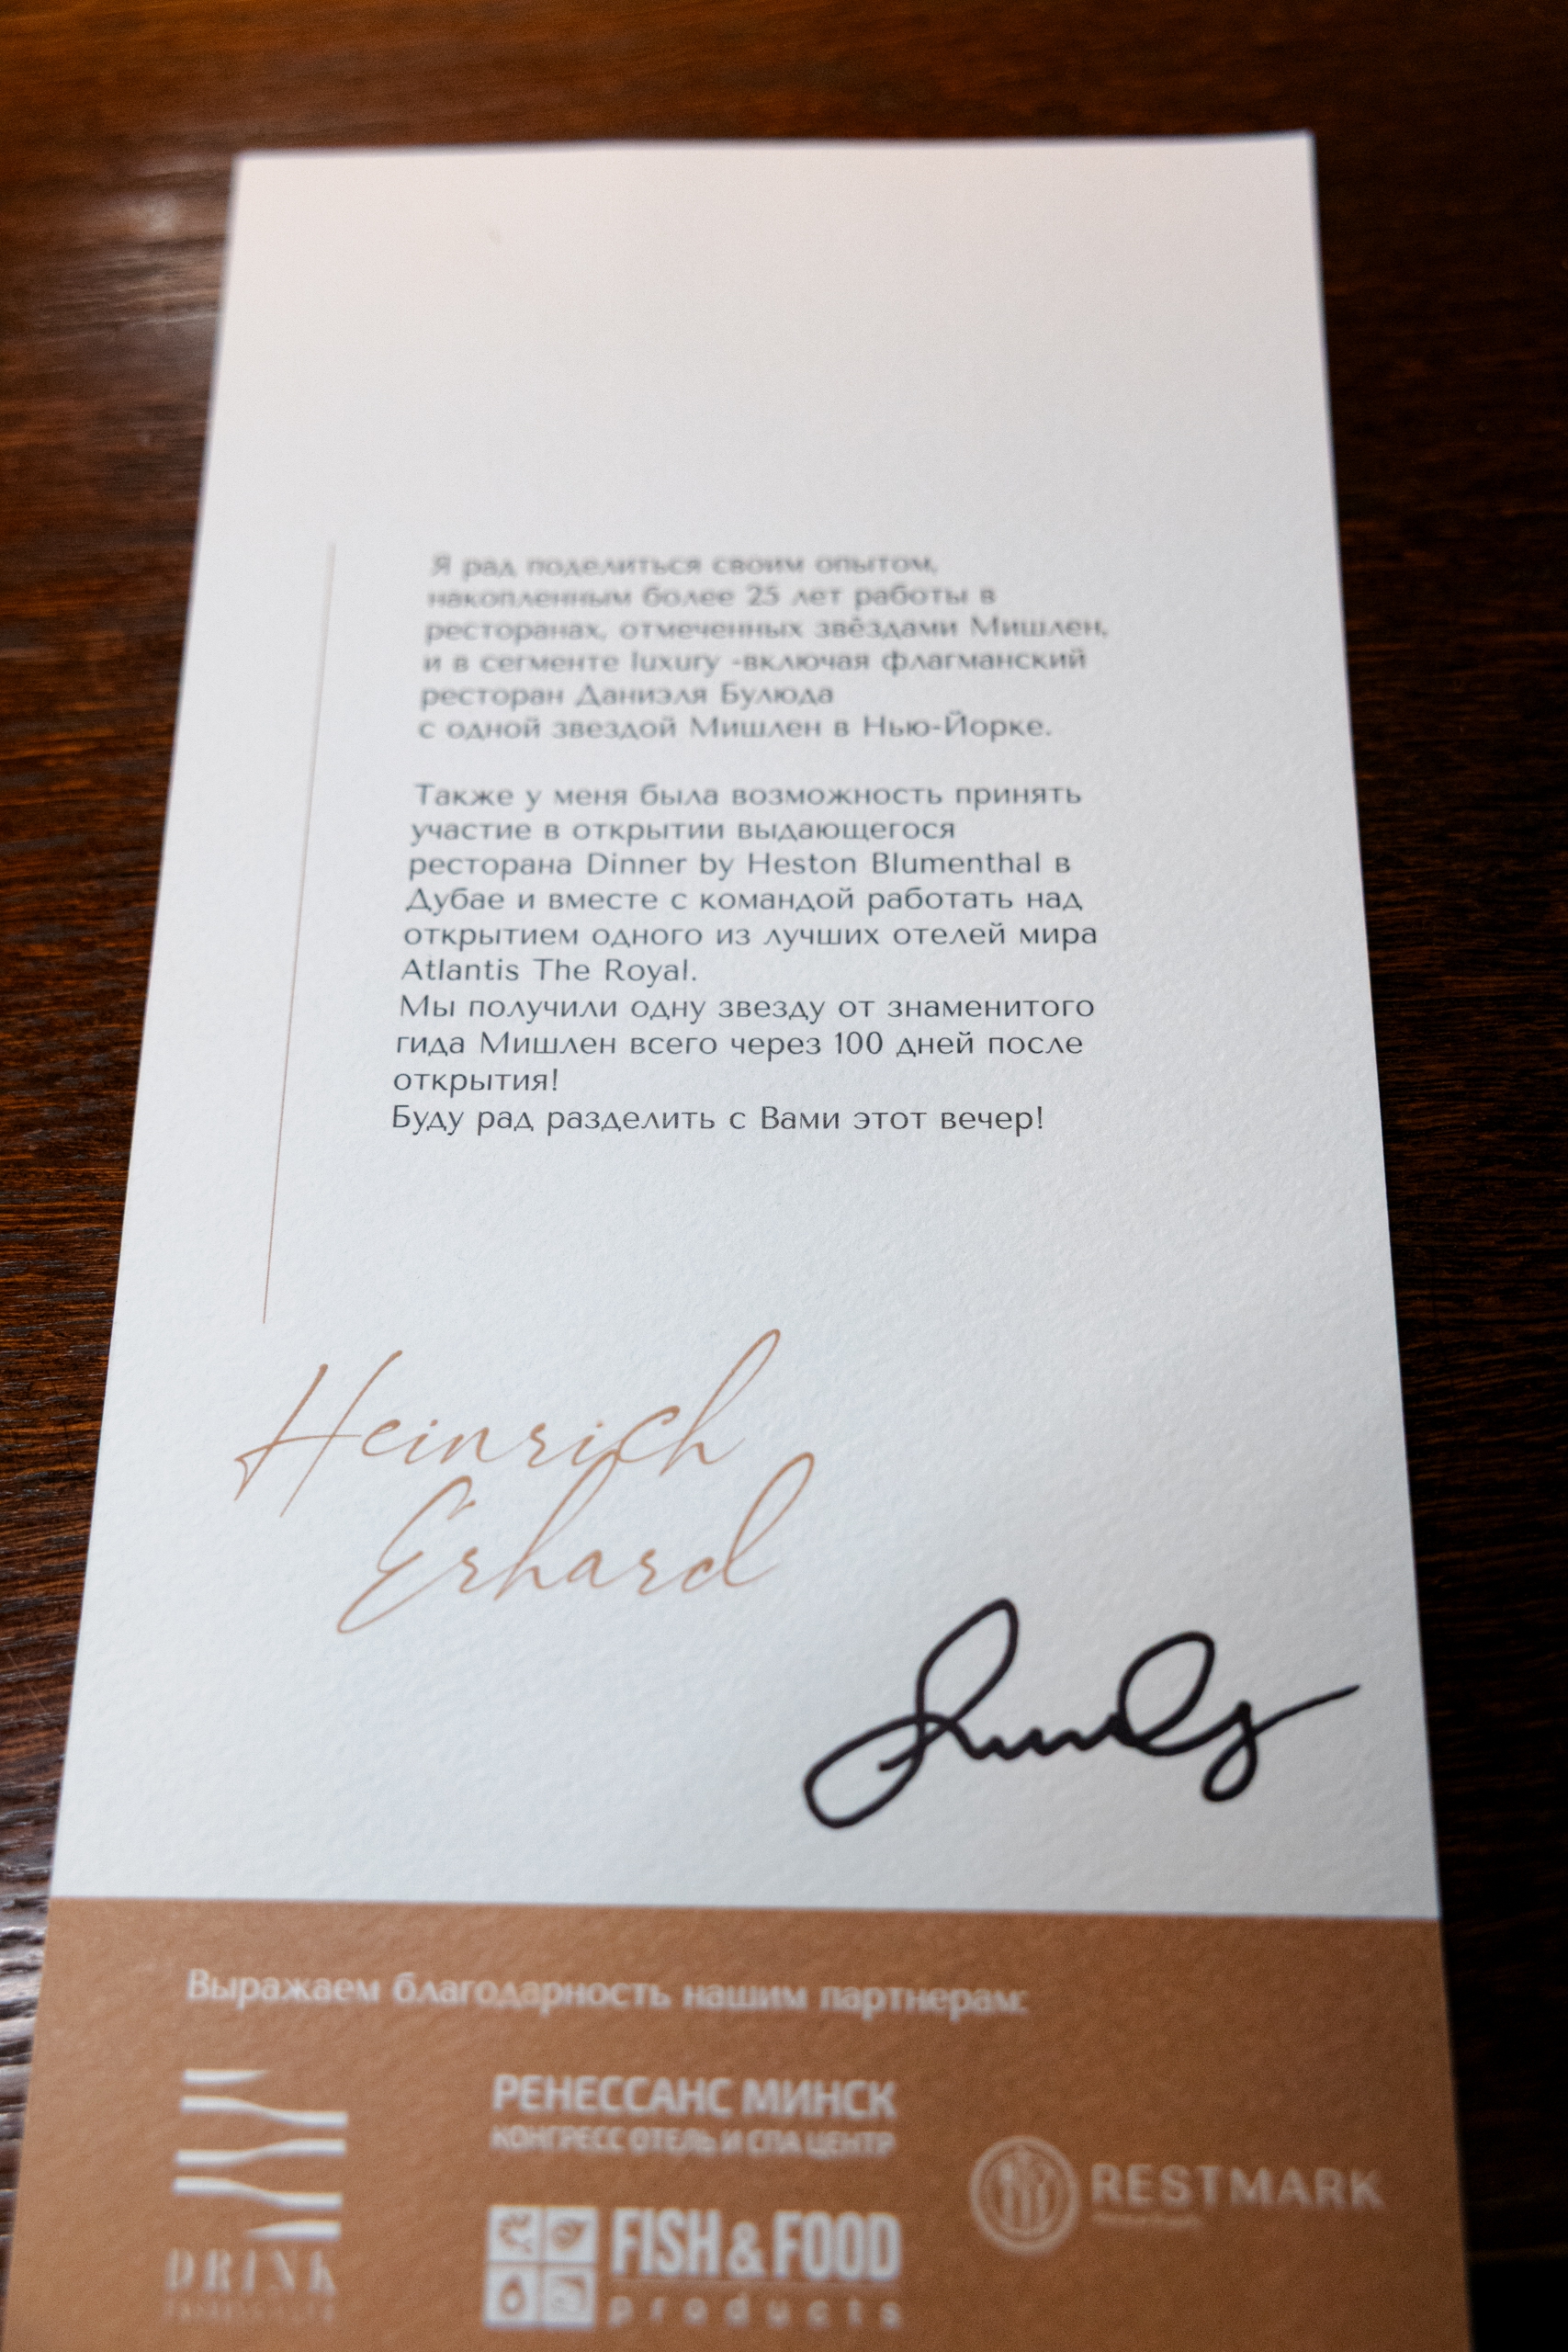 Я рад поделиться своим опытом,
накопленным более 25 лет работы в
ресторанах, отмеченных звёздами Мишлен,
и в сегменте luxury -включая флагманский
ресторан Даниэля Булюда
с одной звездой Мишлен в Нью-Йорке.
Также у меня была возможность принять
участие в открытии выдающегося
ресторана Dinner by Heston Blumenthal в
Дубае и вместе с командой работать над
открытием одного из лучших отелей мира
Atlantis The Royal.
Мы получили одну звезду от знаменитого
гида Мишлен всего через 100 дней после
открытия!
Буду рад разделить с Вами этот вечер!
Heinrich
Erhard
Выражаем благодарность нашим партнерам:
DRINK
РЕНЕССАНС МИНСК
КОНГРЕСС ОТЕЛЬ И СПА ЦЕНТР
FISH & FOOD
products
RESTMARK